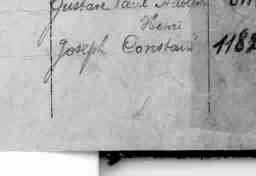 Gustave Paul Adolph
Henri
Joseph Constant 1182